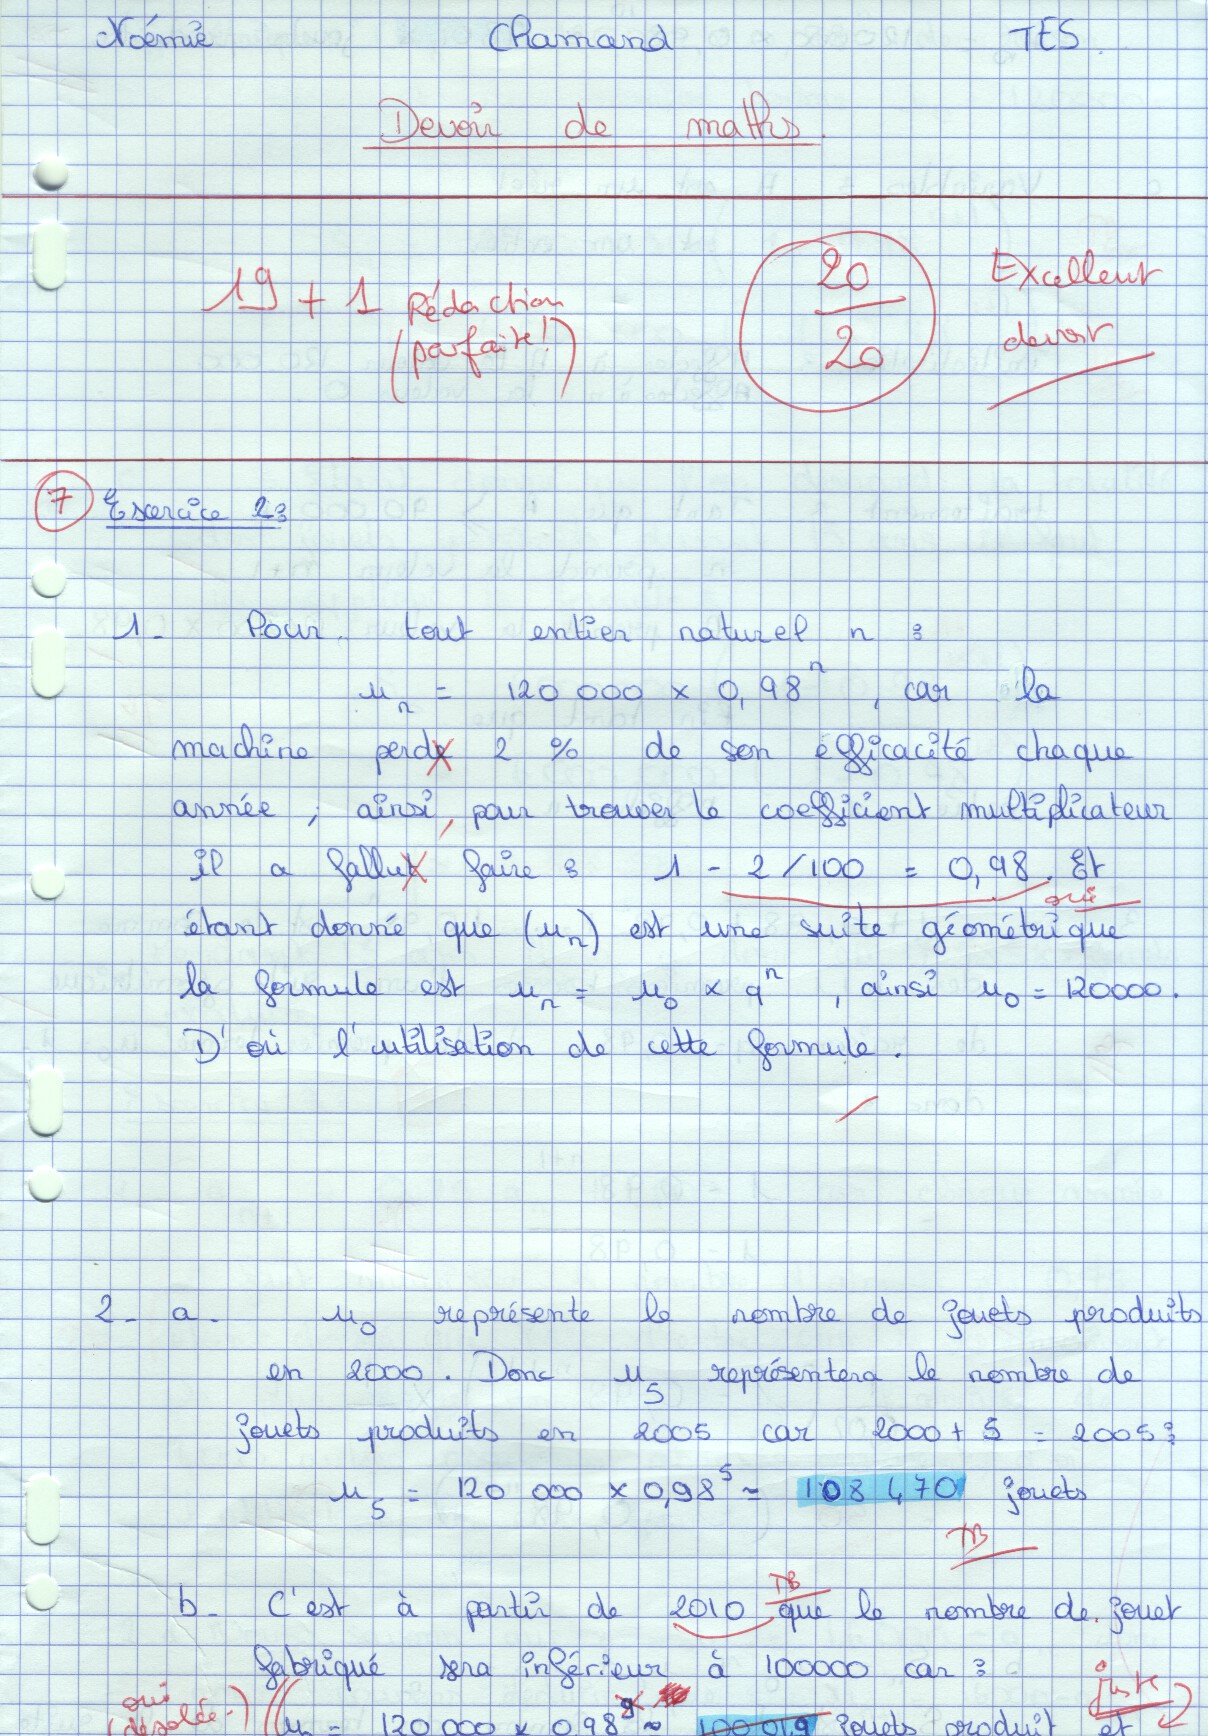 Noémie Chamand TES.
Devoir de maths.
19 + 1 Rédaction
(parfaite!)
20
20
Excellent
devoir
7 Exercice 2:
1- Pour tout entier naturel n :
uₙ = 120 000 × 0,98ⁿ, car la
machine perde 2 % de son efficacité chaque
année ; ainsi, pour trouver le coefficient multiplicateur
il a fallut faire : 1 - 2/100 = 0,98. Et
oui
étant donné que (uₙ) est une suite géométrique
la formule est uₙ = u₀ × qⁿ, ainsi u₀ = 120000.
D'où l'utilisation de cette formule.
2- a- u₀ représente le nombre de jouets produits
en 2000. Donc u₅ représentera le nombre de
jouets produits en 2005 car 2000 + 5 = 2005 :
u₅ = 120 000 × 0,98⁵ ≈ 108 470 jouets
TB
TB
b- C'est à partir de 2010 que le nombre de jouet
fabriqué sera inférieur à 100000 car :
juste
oui
(désolée-)
= 120 000 × 0,98⁹ ≈ 100 019 jouets produit et